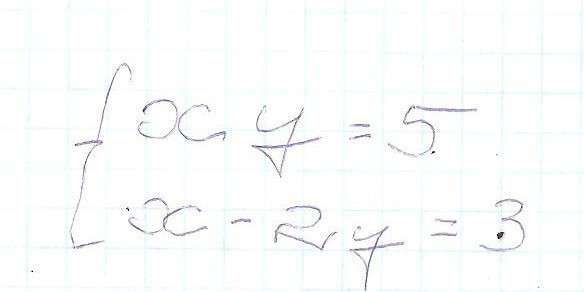 x y = 5
x - 2y = 3